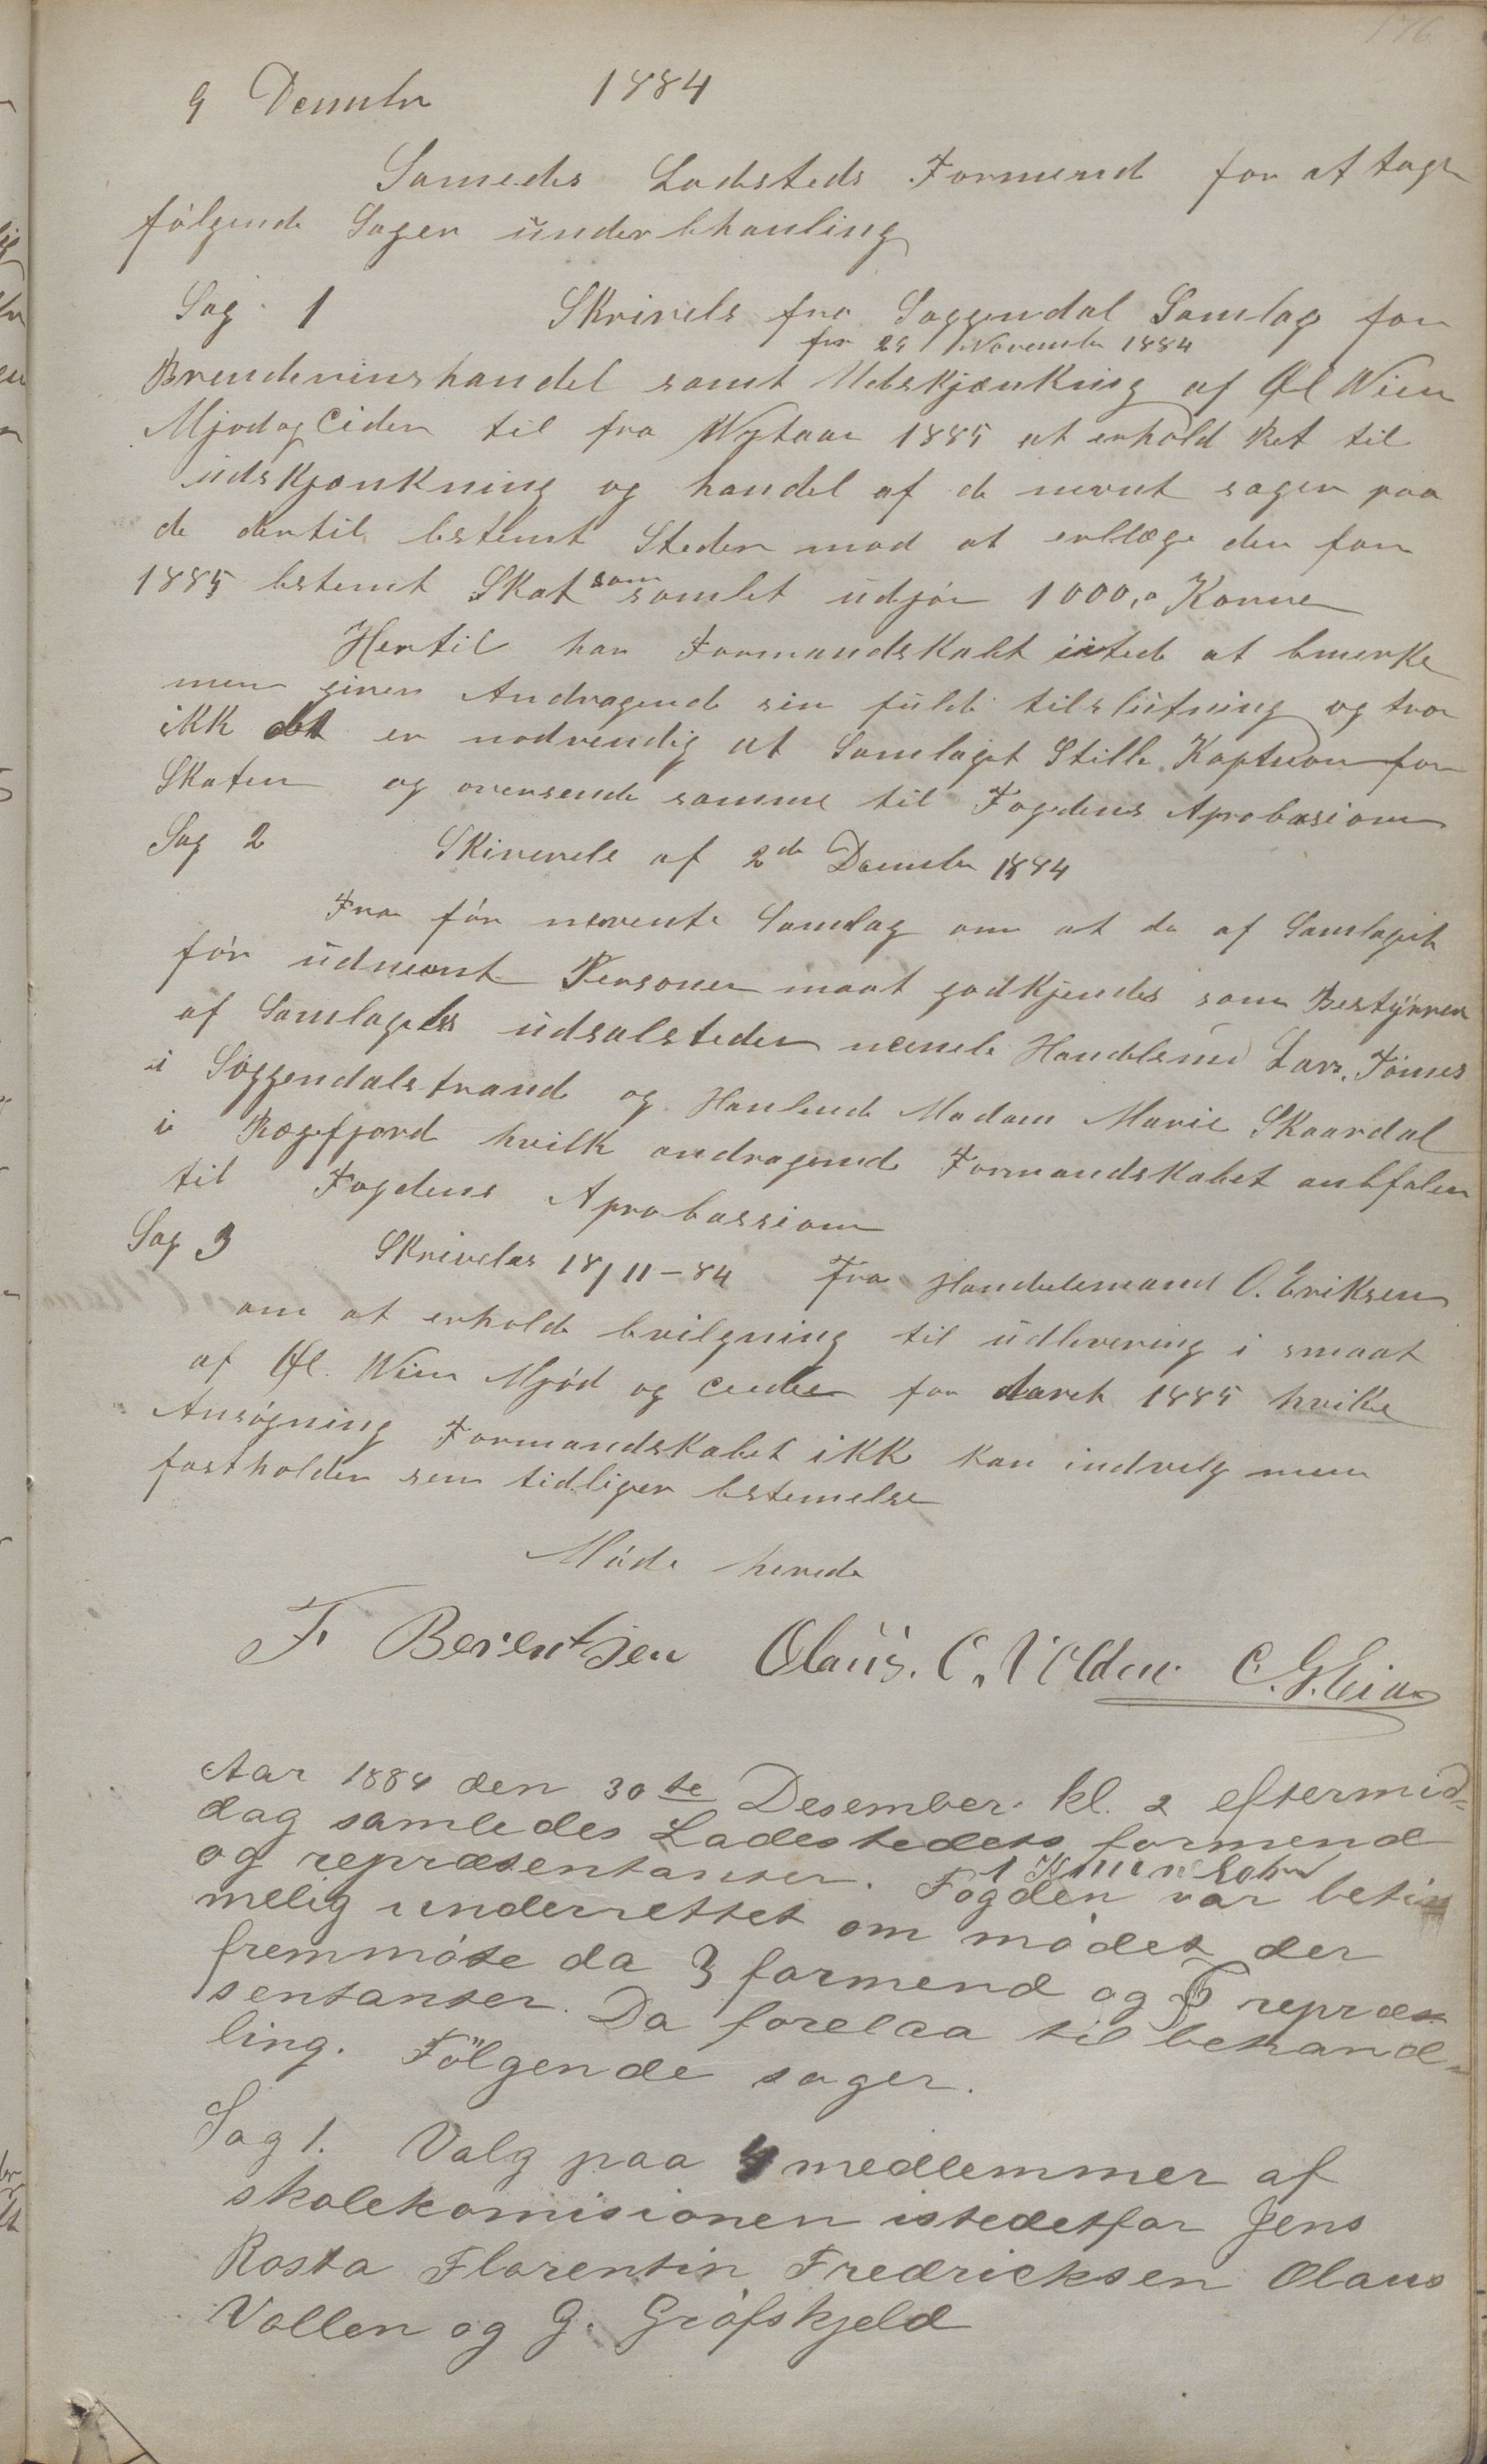 176
9 Decembr 1884
Samedes Ladsteds Formend for at tage
følgende Sager under behanling
Sag 1 Skrivels fra Soggendal Samlag for
fra 29 Novembr 1884
Brendevinshandel samt Udskjænkning af Øl Vien
Mjød og Cider til fra Nytaar 1885 at erhold Ret til
udskjænkning og handel af de nevnt sager paa
de dertil bestemt Steder mod at erllæge den for
1885 bestemt Skat som samlet udgjør 1000,0 Kroner
Hertil har Formandskabet intet at bmerke
men giver Andragende sin fulde tilslutning og tror
ikk det er nodvendig at Samlaget Stille Kaption for
Skaten og oversende samme til Fogdens Aprobasion
Sag 2 Skrivels af 2de Decembr 1884
Fra før nevente Samlag om at de af Samlaget
før udnevnt Personer maat godkjendes som Bestyrer
af Samlagets udsalsteder nemlig Handelsmd Lars. Jonnes
i Soggendalstrand og Hanlende Madam Marie Skaardal
i Rægefjord hvilk andragende Formandskabet anbfaler
til Fogdens Aprobassion
Sag 3 Skrivelse 18/11-84 Fra Handelsmand O. Eriksen
om at erholde bvilgning til udlevering i smaat
af Øl. Wien Mjød og Ceider for daret 1885 hvilke
Ansøgning Formandskabet ikk kan indvilg men
fastholder sen tidliger bstemelse
Møde hevede
F. Berentsen Olaus. C. Volden C. G. Eia
Aar 1884 den 30te Desember. kl. 2 eftermid-
dag samledes Ladestedets formend
og repræsentanter. Fogden var betim
melig underrettet om mødet der
fremmøte da 3 formend og 8 repræ-
sentanter. Da forelaa til behand-
ling. Følgende sager.
Sag 1. Valg paa 4 medlemmer af
skolekomisionen istedetfor Jens
Rosta Florentin Fredricksen Olaus
Vollen og G. Grøfskjeld